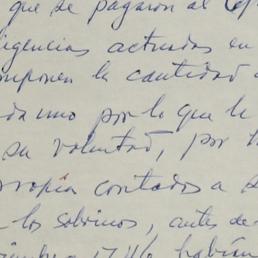 que se pagaron al
igencias actuadas en
mponen la cantidad
da uno por lo que le
su voluntad, por
ropia contados a
los sobrinos, antes de
1746 habían